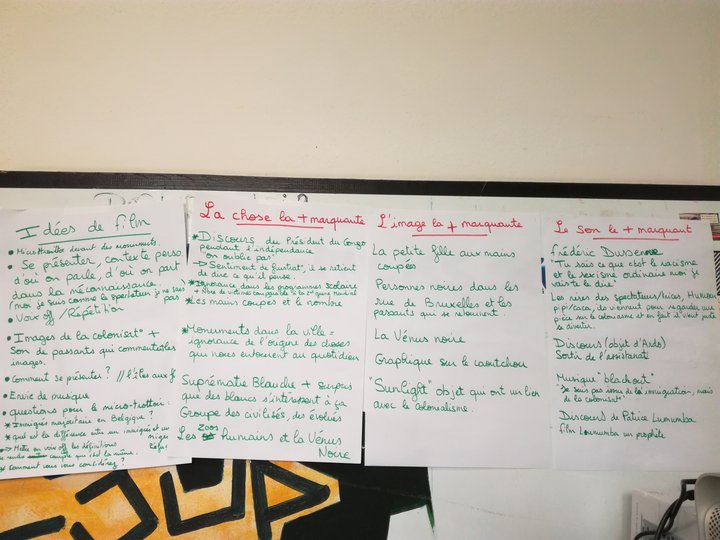 Idées de film
• Micro trottoir devant des monuments.
• Se présenter, contexte perso
d'où on parle, d'où on part
dans la méconnaissance,
(moi je suis comme le spectateur je ne sais
pas
• Voix off / Répétition
• Images de la colonisat° +
Son de passants qui commentent les
images.
• Comment se présenter ? // l'
• Envie de musique
• questions pour le micro-trottoir :
* Immigrés majoritaire en Belgique ?
* quel est la différence entre un immigrés et un
-> Mettre en voix off les définitions
rendre compte que c'est la même.
comment vous vous considérez ?
La chose la + marquante
* Discours du Président du Congo
pendant l'indépendance
"on oublie pas"
-> Sentiment de frustrat°, il se retient
de dire ce qu'il pense
* Ignorance dans les programmes scolaire
+ Nbre de victimes comparable à la 2nd guerre mondiale
* Les mains coupés et le nombre
* Monuments dans la ville =
ignorance de l'origine des choses
qui nous entourent au quotidien
Suprématie Blanche + surpris
que des blancs s'intéressent à ça
Groupe des civilités, des évolués
Les zoos humains et la Vénus
Noire
L'image la + marquante
La petite fille aux mains
coupées
Personnes noires dans les
rue de Bruxelles et les
passants qui se retournent.
La Vénus noire
Graphique sur le caoutchou
"Sunlight" objet qui ont un lien
avec le colonialisme.
Le son le + marquant
Frédéric
"Tu sais ce que c'est le racisme
et le sexisme ordinaire moi je
vais te le dire"
Les rires des spectateurs/rices, Humour
pipi/caca, ils viennent pour regarder une
pièce sur le colonialisme et en fait il vient juste
se divertir.
Discours (objet d'Ardo)
Sortir de l'assistanat
Musique "blackout"
"Je suis pas issu de l'immigration, mais
de la colonisat°"
Discours de Patrice Lumumba
film Loumumba un prophète